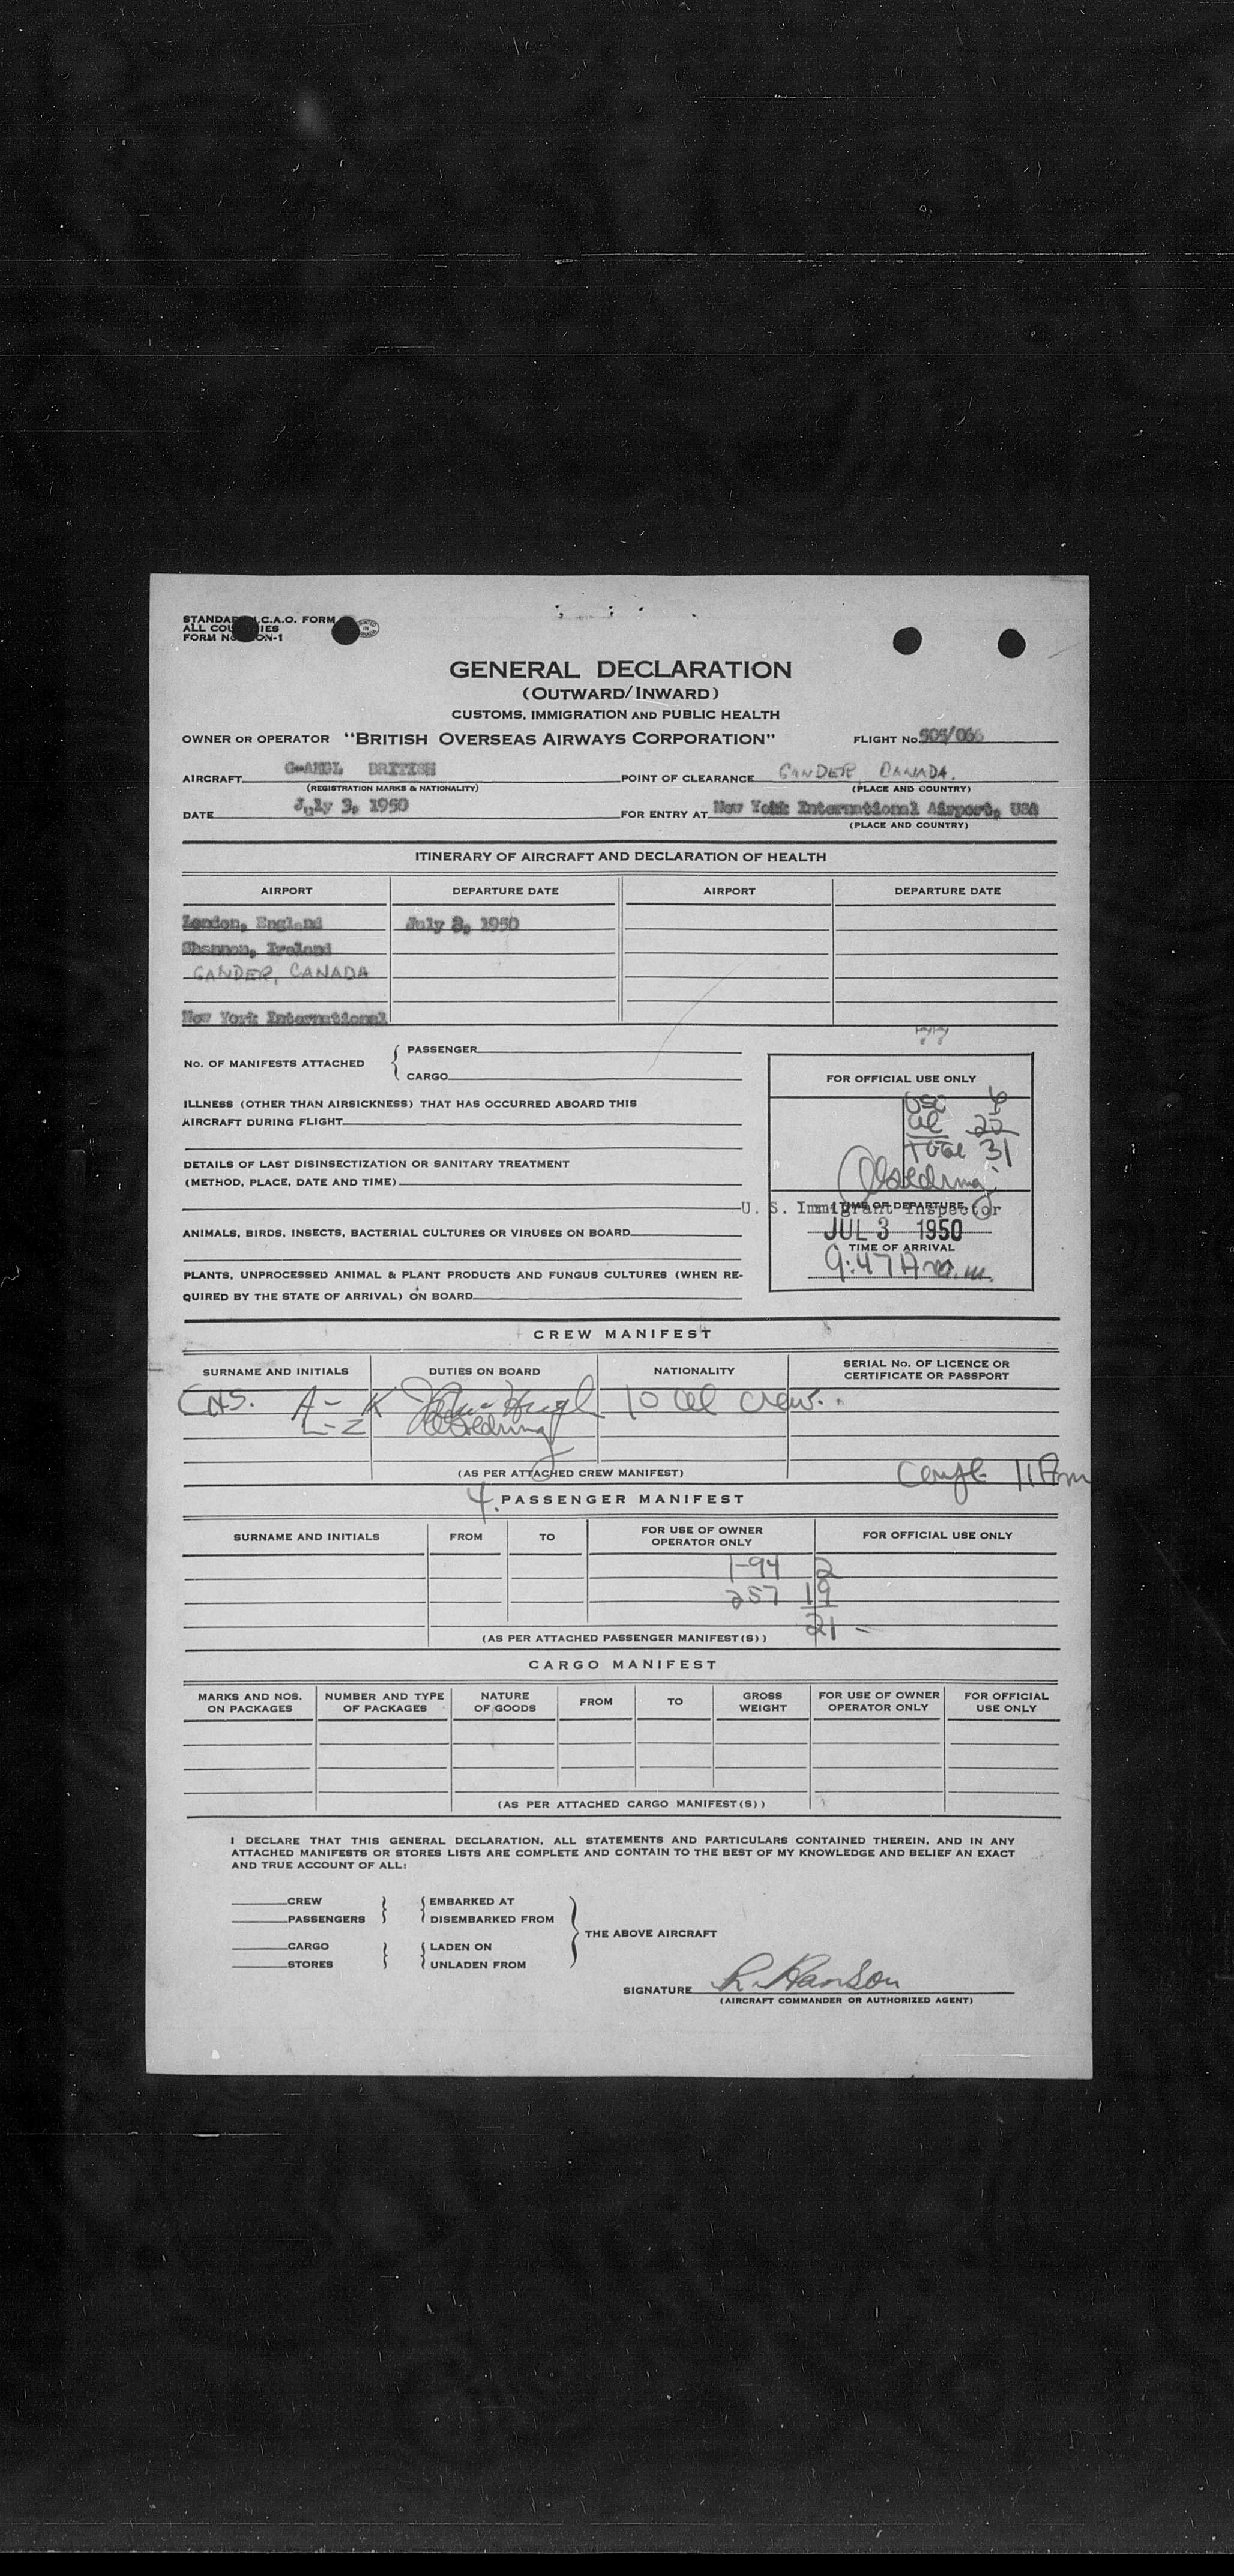 STANDARD I.C.A.O. FORM
ALL COUNTRIES
FORM No. CON-1
GENERAL DECLARATION
(OUTWARD/INWARD)
CUSTOMS, IMMIGRATION AND PUBLIC HEALTH
OWNER OR OPERATOR "BRITISH OVERSEAS AIRWAYS CORPORATION" FLIGHT No. 505/066
AIRCRAFT G-AHGL BRITISH POINT OF CLEARANCE GANDER, CANADA.
(REGISTRATION MARKS & NATIONALITY) (PLACE AND COUNTRY)
DATE July 3, 1950 FOR ENTRY AT New York International Airport, USA
(PLACE AND COUNTRY)
ITINERARY OF AIRCRAFT AND DECLARATION OF HEALTH
AIRPORT DEPARTURE DATE AIRPORT DEPARTURE DATE
London, England July 2, 1950
Shannon, Ireland
GANDER, CANADA
New York International
No. OF MANIFESTS ATTACHED { PASSENGER
CARGO
FOR OFFICIAL USE ONLY
USC 6
al 25
Total 31
U. S. Immigrant Inspector
TIME OF DEPARTURE
JUL 3 1950
TIME OF ARRIVAL
9:47 A m.
ILLNESS (OTHER THAN AIRSICKNESS) THAT HAS OCCURRED ABOARD THIS
AIRCRAFT DURING FLIGHT
DETAILS OF LAST DISINSECTIZATION OR SANITARY TREATMENT
(METHOD, PLACE, DATE AND TIME)
ANIMALS, BIRDS, INSECTS, BACTERIAL CULTURES OR VIRUSES ON BOARD
PLANTS, UNPROCESSED ANIMAL & PLANT PRODUCTS AND FUNGUS CULTURES (WHEN RE-
QUIRED BY THE STATE OF ARRIVAL) ON BOARD
CREW MANIFEST
SURNAME AND INITIALS DUTIES ON BOARD NATIONALITY SERIAL No. OF LICENCE OR
CERTIFICATE OR PASSPORT
A-K 10 al crew.
L-Z
(AS PER ATTACHED CREW MANIFEST)
4. PASSENGER MANIFEST
SURNAME AND INITIALS FROM TO FOR USE OF OWNER
OPERATOR ONLY FOR OFFICIAL USE ONLY
1-94 2
257 19
21 -
(AS PER ATTACHED PASSENGER MANIFEST(S))
CARGO MANIFEST
MARKS AND NOS.
ON PACKAGES NUMBER AND TYPE
OF PACKAGES NATURE
OF GOODS FROM TO GROSS
WEIGHT FOR USE OF OWNER
OPERATOR ONLY FOR OFFICIAL
USE ONLY
(AS PER ATTACHED CARGO MANIFEST(S))
I DECLARE THAT THIS GENERAL DECLARATION, ALL STATEMENTS AND PARTICULARS CONTAINED THEREIN, AND IN ANY
ATTACHED MANIFESTS OR STORES LISTS ARE COMPLETE AND CONTAIN TO THE BEST OF MY KNOWLEDGE AND BELIEF AN EXACT
AND TRUE ACCOUNT OF ALL:
CREW } { EMBARKED AT
PASSENGERS } { DISEMBARKED FROM
} THE ABOVE AIRCRAFT
CARGO } { LADEN ON
STORES } { UNLADEN FROM
SIGNATURE R. Hanson
(AIRCRAFT COMMANDER OR AUTHORIZED AGENT)